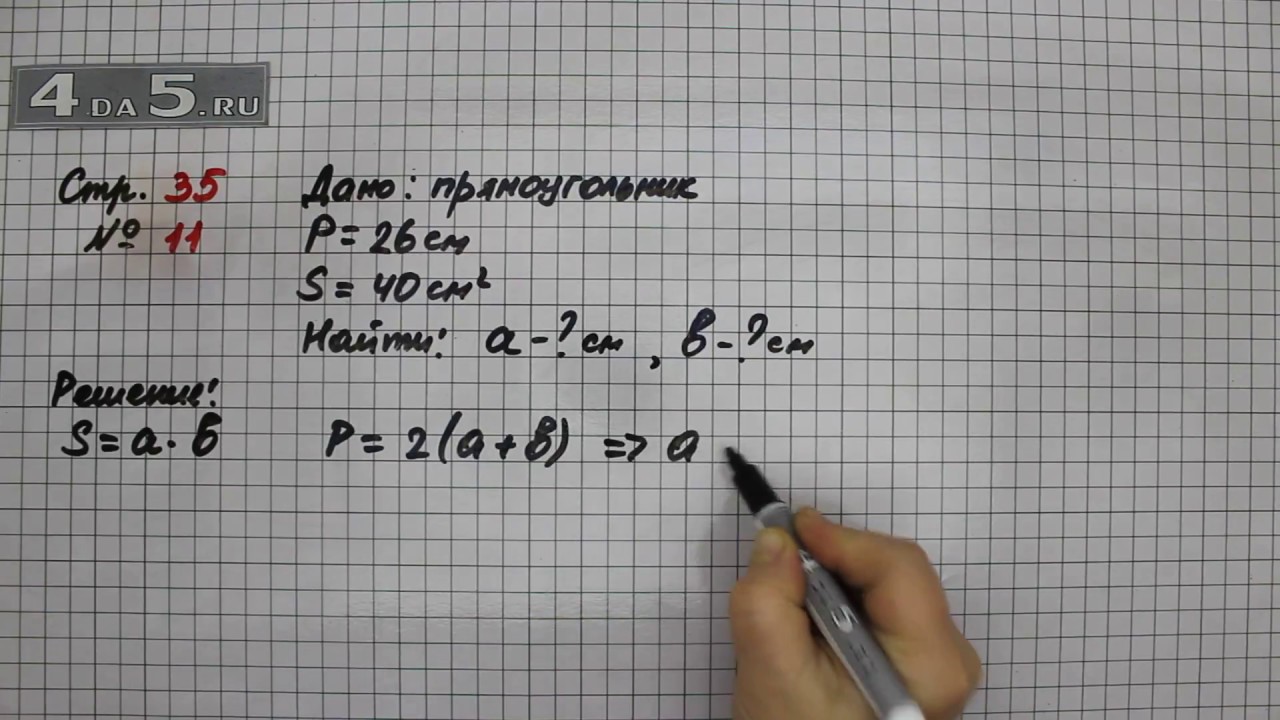 4 DA 5.RU
Стр. 35
№ 11
Дано: прямоугольник
P = 26 см
S = 40 см²
Найти: a - ? см, в - ? см
Решение:
S = a · б
P = 2(a + в) => a
S